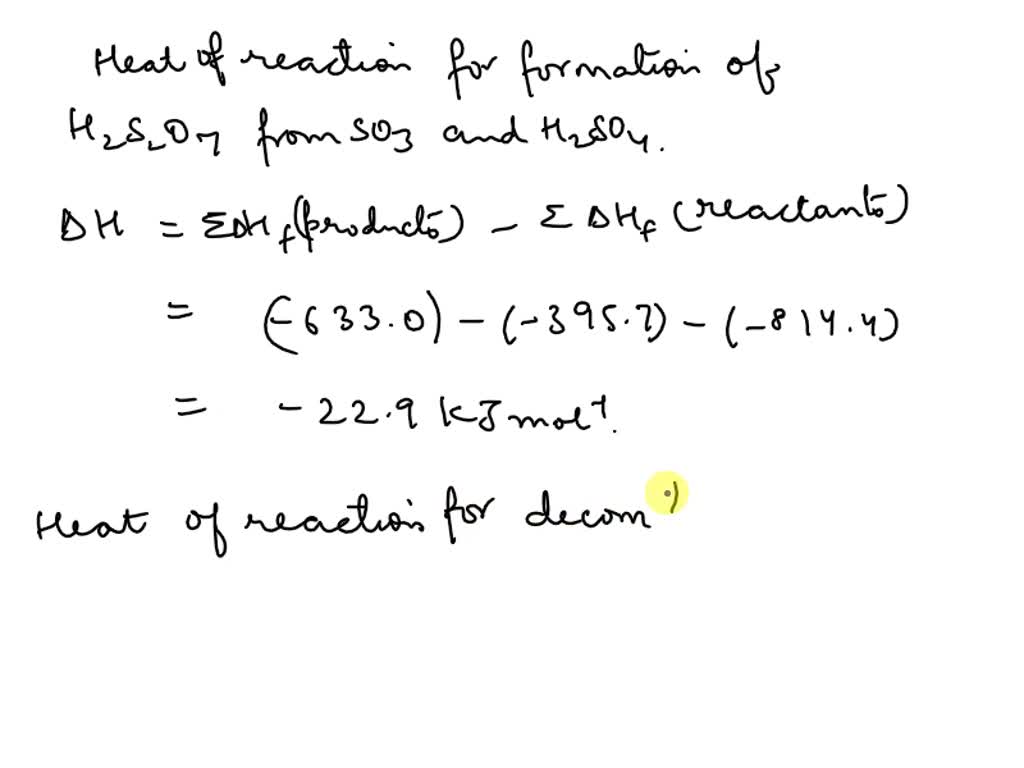 Heat of reaction for formation of
H₂S₂O₇ from SO₃ and H₂SO₄.
ΔH = ΣΔH_f(products) - ΣΔH_f(reactants)
= (-633.0) - (-395.7) - (-814.4)
= -22.9 kJ mol⁻¹.
Heat of reaction for decom